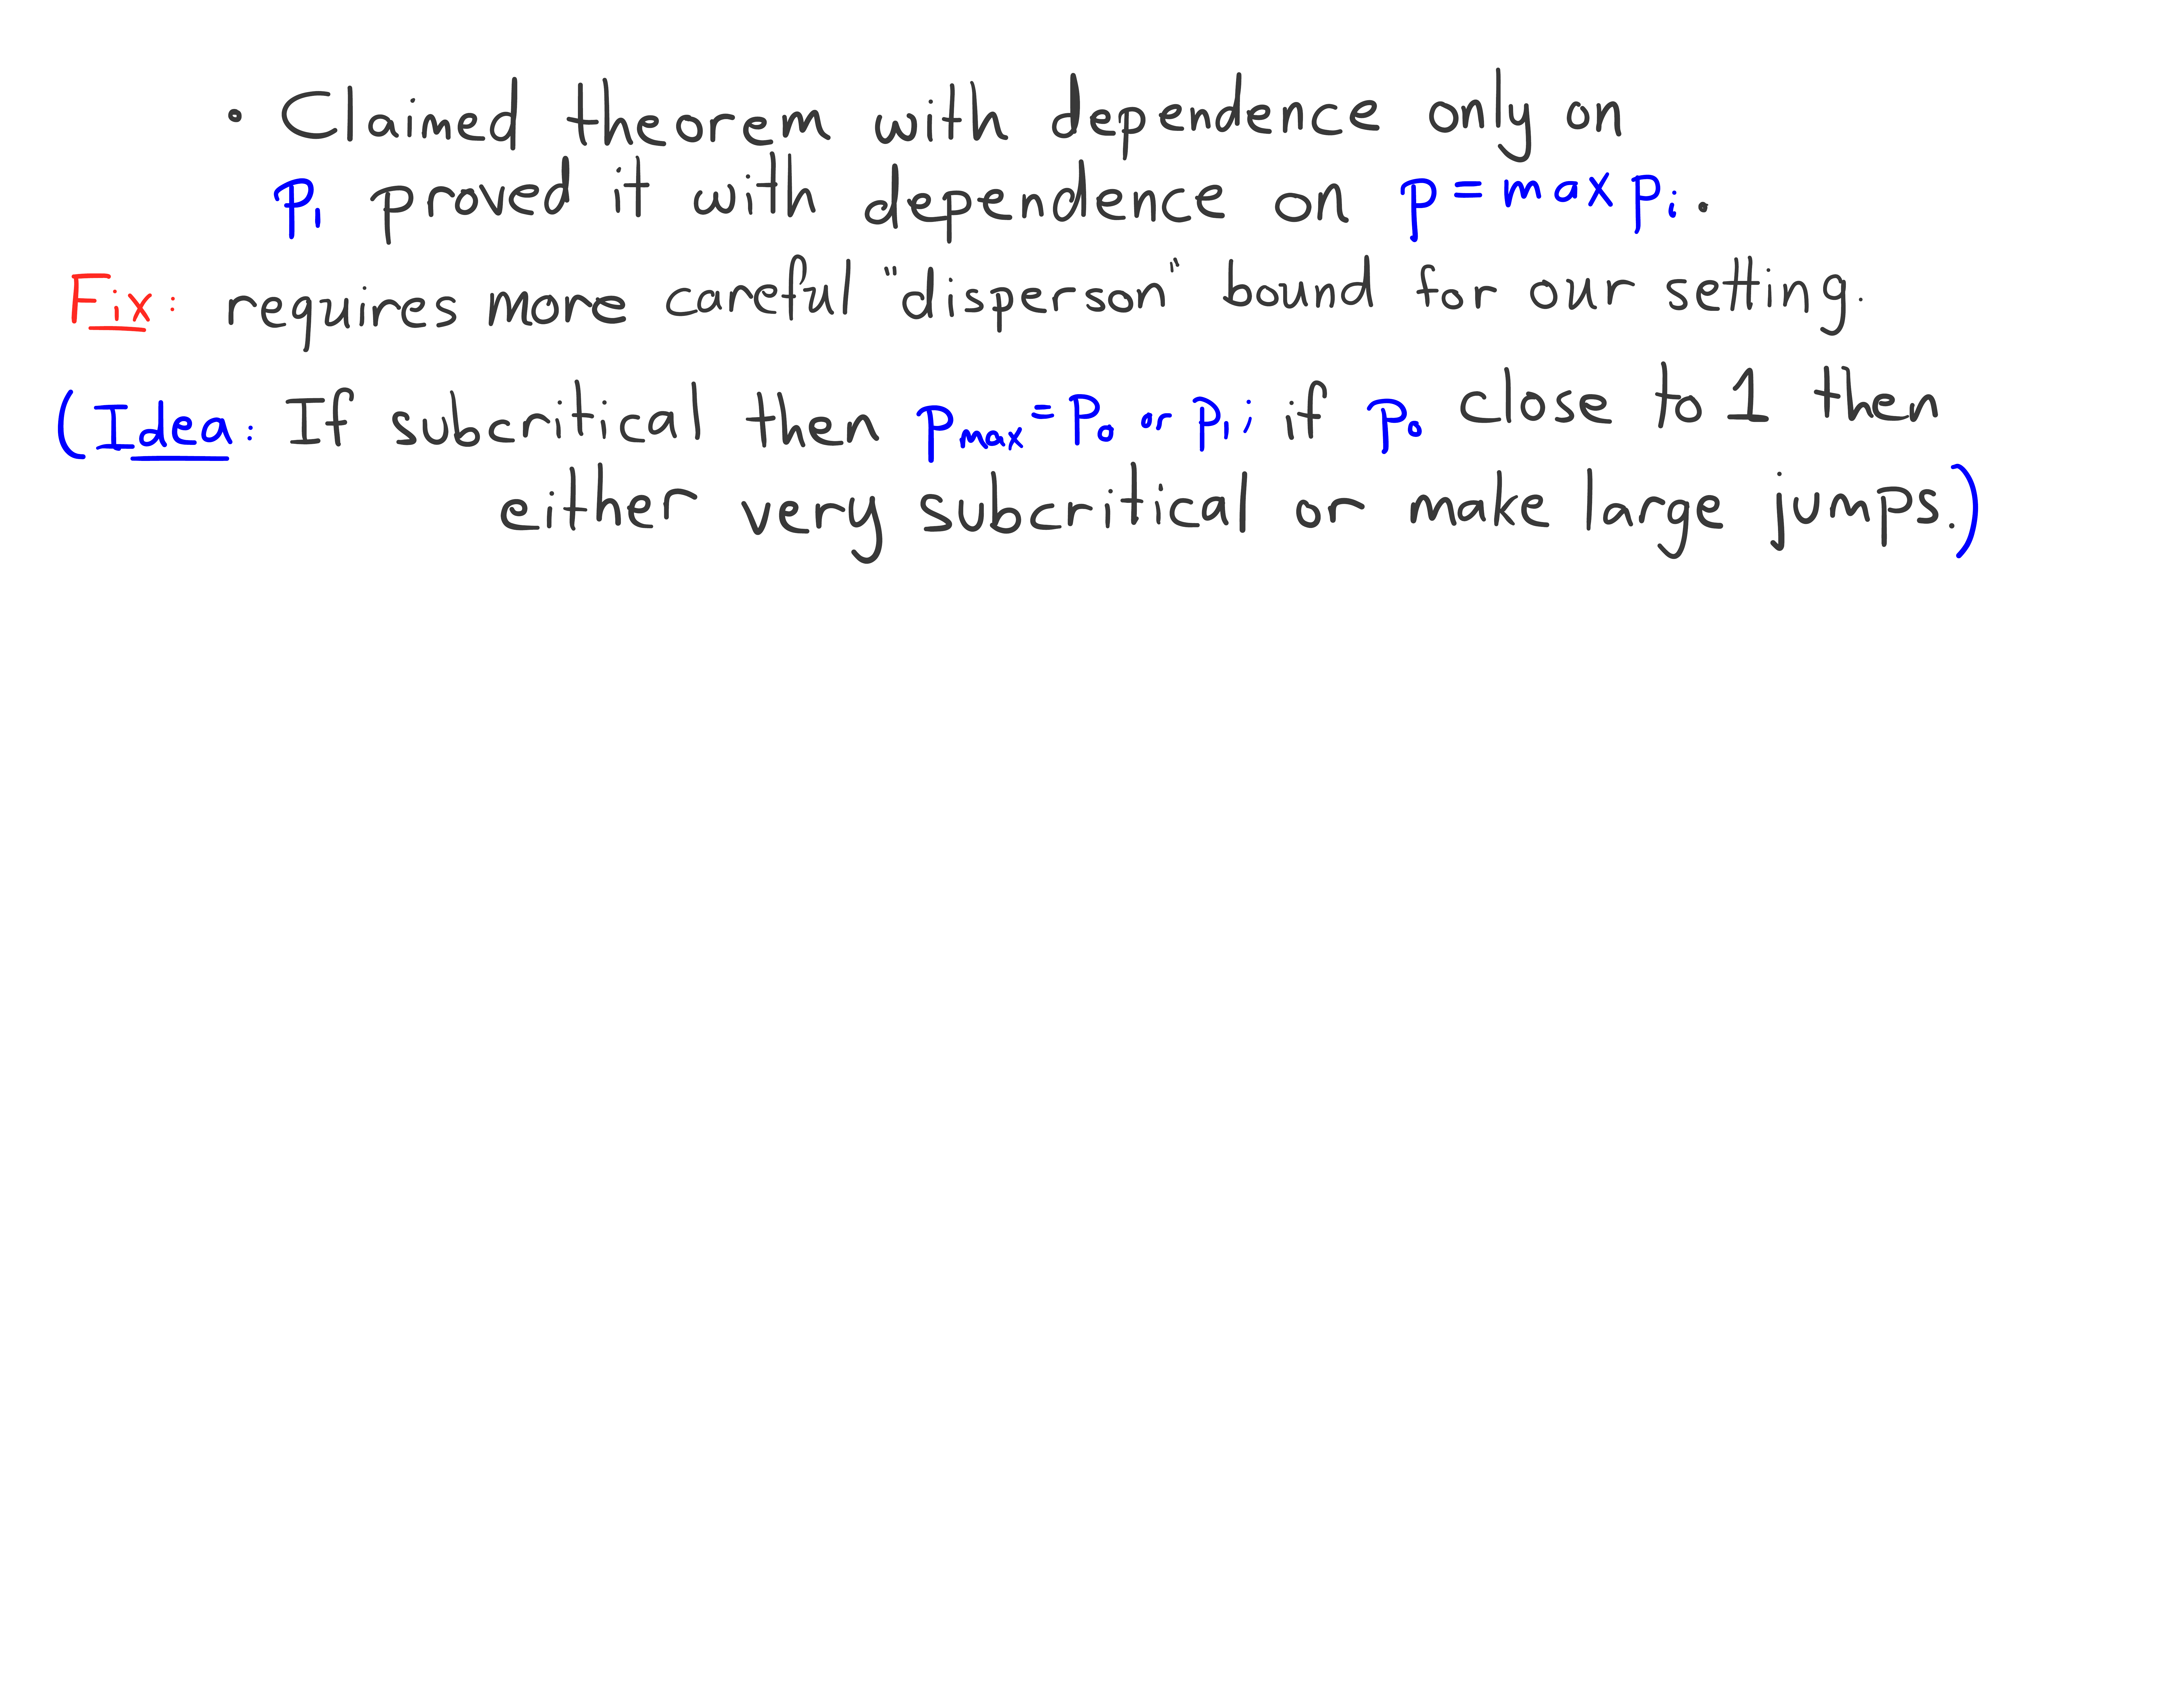 • Claimed theorem with dependence only on
p₁ proved it with dependence on p = max pᵢ.
Fix: requires more careful "disperson" bound for our setting.
(Idea: If subcritical then pₘₐₓ = p₀ or p₁; if p₀ close to 1 then
either very subcritical or make large jumps.)